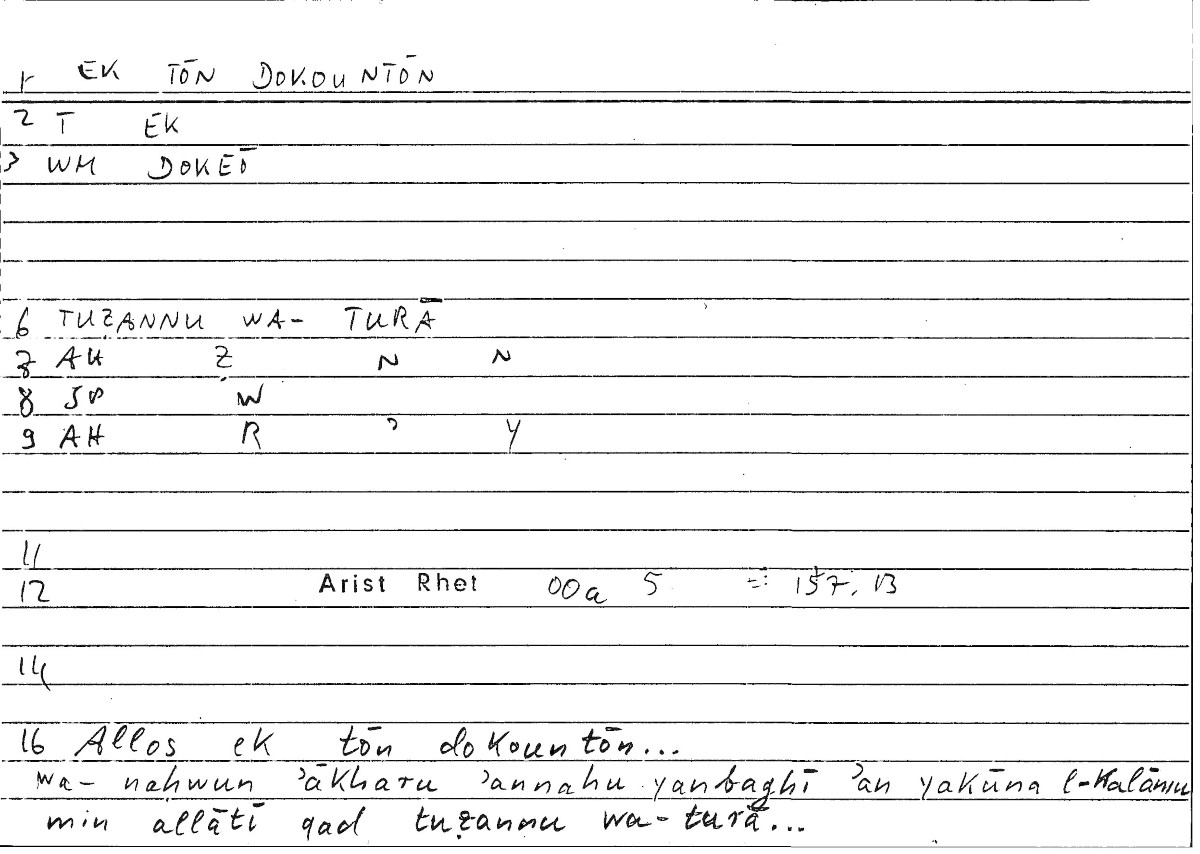 1 EK TŌN DOKOUNTŌN
2 T EK
3 WM DOKEŌ
6 TUẒANNU WA- TURĀ
7 AH Ẓ N N
8 SP W
9 AH R ʾ Y
11
12 Arist Rhet 00a 5 =: 157, 13
14
16 Allos ek tōn dokountōn...
wa- naḥwun ʾākharu ʾannahu yanbaghī ʾan yakūna l-Kalāmu
min allātī qad tuẓannu wa-turā...